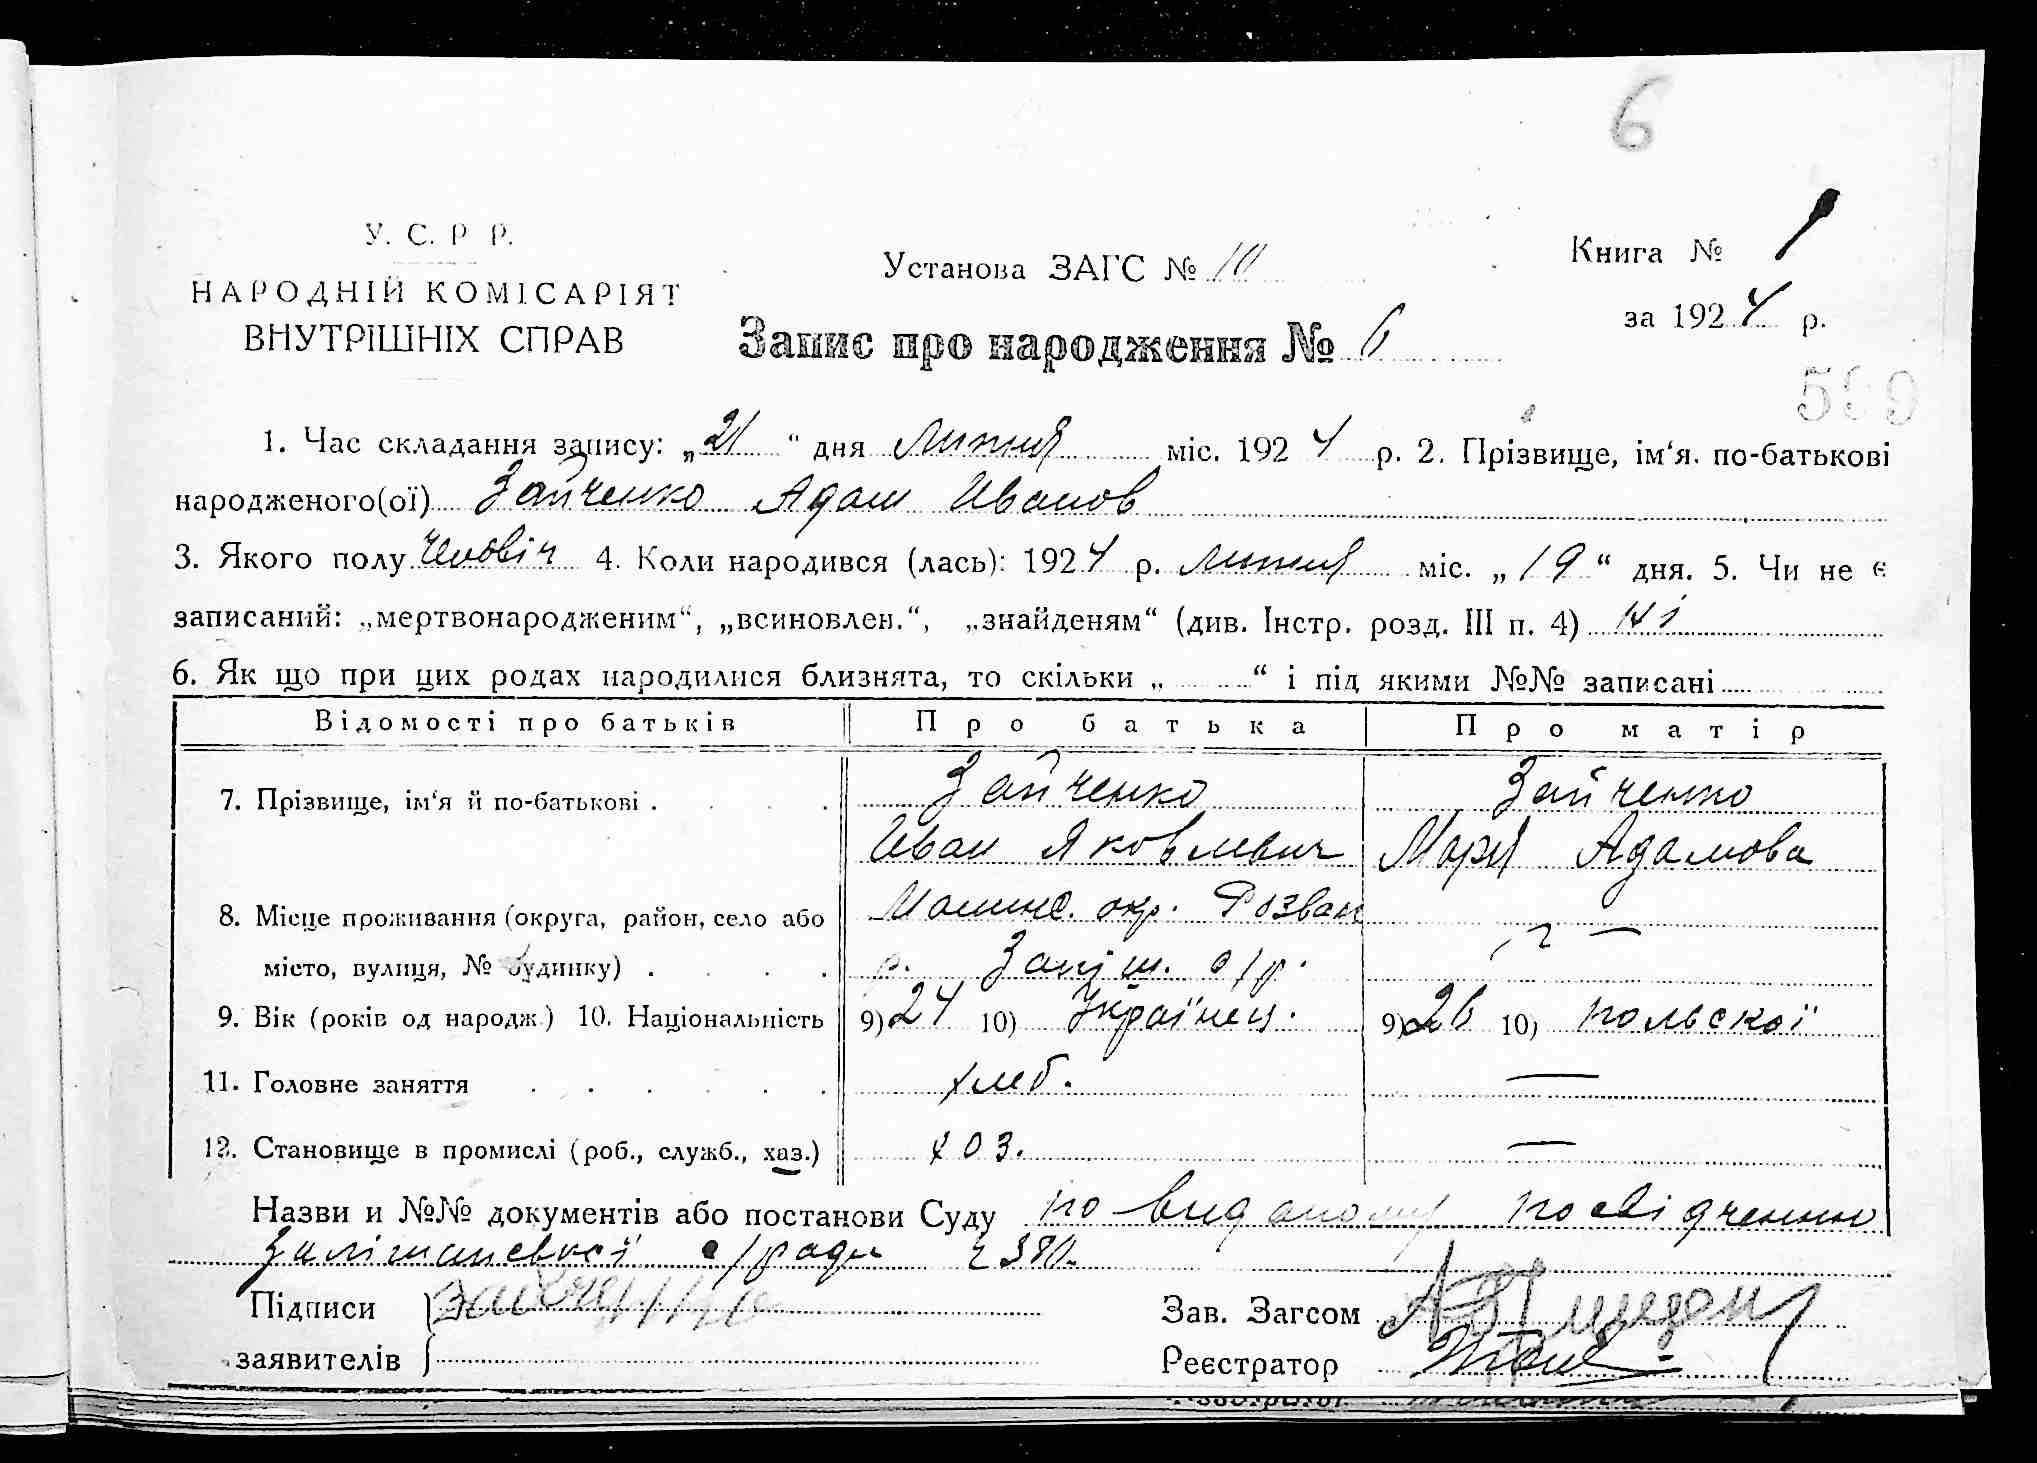 6
У. С. Р Р.
НАРОДНІЙ КОМІСАРІЯТ
ВНУТРІШНІХ СПРАВ
Установа ЗАГС № 10
Книга № 1
за 1924 р.
Запис про народження № 6
1. Час складання запису: „21“ дня Липня міс. 1924 р. 2. Прізвище, ім'я, по-батькові
народженого(ої) Зайченко Адам Иванов
3. Якого полу Чоловіч 4. Коли народився (лась): 1924 р. Липня міс. „19“ дня. 5. Чи не є
записаний: „мертвонародженим“, „всиновлен.“, „знайденям“ (див. Інстр. розд. III п. 4) Ні
6. Як що при цих родах народилися близнята, то скільки „ “ і під якими №№ записані
Відомості про батьків Про батька Про матір
7. Прізвище, ім'я й по-батькові . Зайченко Зайченко
Иван Яковлевич Марія Адамова
8. Місце проживання (округа, район, село або окр. Розваж
місто, вулиця, № будинку) . р. с/р.
9. Вік (років од народж.) 10. Національність 9) 24 10) Українец. 9) 26 10) польскої
11. Головне заняття хлеб. —
12. Становище в промислі (роб., служб., хаз.) хоз. —
Назви и №№ документів або постанови Суду по виданому посвідченню
с/ради
Підписи Зайченко
заявителів
Зав. Загсом
Реєстратор